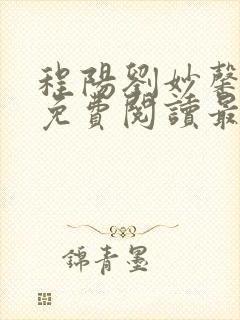 程陽劉妙馨
免費閱讀最
錦青墨